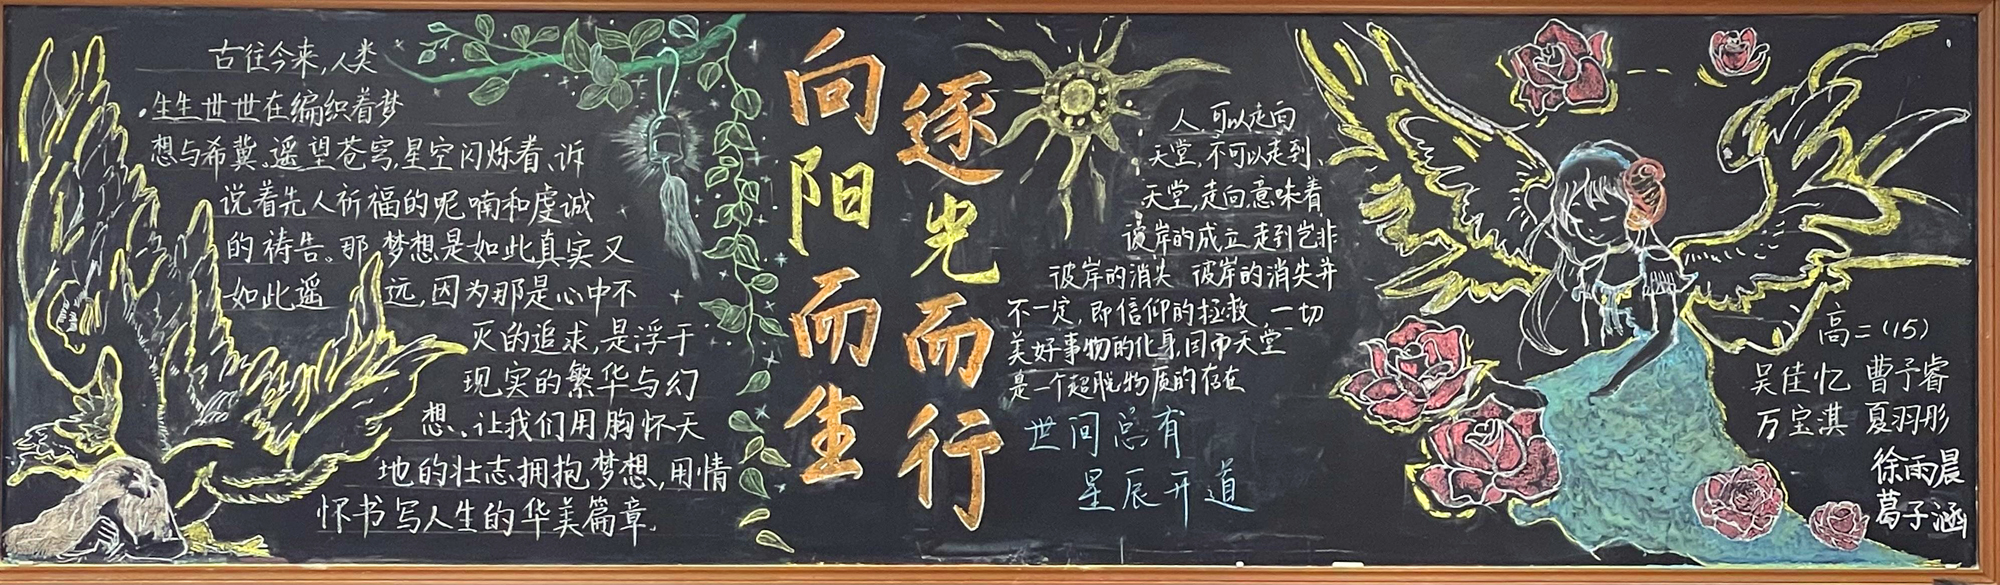 古往今来,人类
生生世世在编织着梦
想与希冀。遥望苍穹,星空闪烁着、诉
说着先人祈福的呢喃和虔诚
的祷告。那梦想是如此真实又
如此遥远,因为那是心中不
灭的追求,是浮于
现实的繁华与幻
想、让我们用胸怀天
地的壮志拥抱梦想,用情
怀书写人生的华美篇章。
向阳而生
逐光而行
人可以走向
天堂,不可以走到、
天堂,走向,意味着
彼岸的成立 走到岂非
彼岸的消失 彼岸的消失并
不一定,即信仰的拯救 一切
美好事物的化身,因而天堂
是一个超脱物质的存在
世间总有
星辰开道
高二(15)
吴佳忆 曹予睿
万宝淇 夏羽彤
徐雨晨
葛子涵